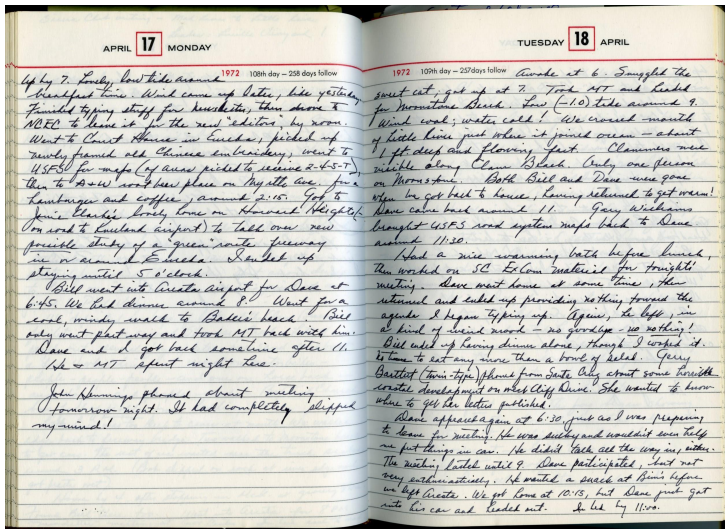 APRIL 17 MONDAY
1972 108th day — 258 days follow
Up by 7. Lovely, low tide around
breakfast time. Wind came up later, like yesterday.
Finished typing stuff for newsletter, then drove to
NCEC to leave it for the new "editors" by noon.
Went to Court House in Eureka; picked up
newly framed old Chinese embroidery; went to
USFS for maps (of areas picked to receive 2-4-5-T),
then to A&W root beer place on Myrtle Ave. for a
hamburger and coffee, around 2:15. Got to
lovely home on Howard Heights
on road to Kneeland airport) to talk over new
possible study of a "green" route freeway
in or around Eureka. I ended up
staying until 5 o'clock.
Bill went into Arcata Airport for Dave at
6:45. We had dinner around 8. Went for a
cool, windy walk to Baker's beach. Bill
only went part way and took MT back with him.
Dave and I got back sometime after 11.
He & MT spent night here.
John Hennings phoned about meeting
tomorrow night. It had completely slipped
my mind!
TUESDAY 18 APRIL
1972 109th day — 257 days follow
Awoke at 6. Snuggled the
sweet cat; got up at 7. Took MT and headed
for Moonstone Beach. Low (-1.0) tide around 9.
Wind cool; water cold! We crossed mouth
of Little River just where it joined ocean — about
1 ft deep and flowing fast. Clammers were
visible along Clam Beach. Only one person
on Moonstone. Both Bill and Dave were gone
when we got back to house, having returned to get warm!
Dave came back around 11. Gary Williams
brought USFS road system maps back to Dave
around 11:30.
Had a nice warming bath before lunch,
then worked on SC ExCom material for tonights'
meeting. Dave went home at some time, then
returned and ended up providing nothing toward the
agenda I began typing up. Again, he left, in
a kind of weird mood — no goodbye — no nothing!
Bill ended up having dinner alone, though I cooked it.
No time to eat any more than a bowl of salad. Gerry
Bartlett (twin-type) phoned from Santa Cruz about some horrible
coastal development on West Cliff Drive. She wanted to know
where to get her letters published.
Dave appeared again at 6:30 just as I was preparing
to leave for meeting. He was sulky and wouldn't even help
me put things in car. He didn't talk all the way in, either.
The meeting lasted until 9. Dave participated, but not
very enthusiastically. He wanted a snack at Bim's before
we left Arcata. We got home at 10:15, but Dave just got
into his car and headed out. In bed by 11:00.